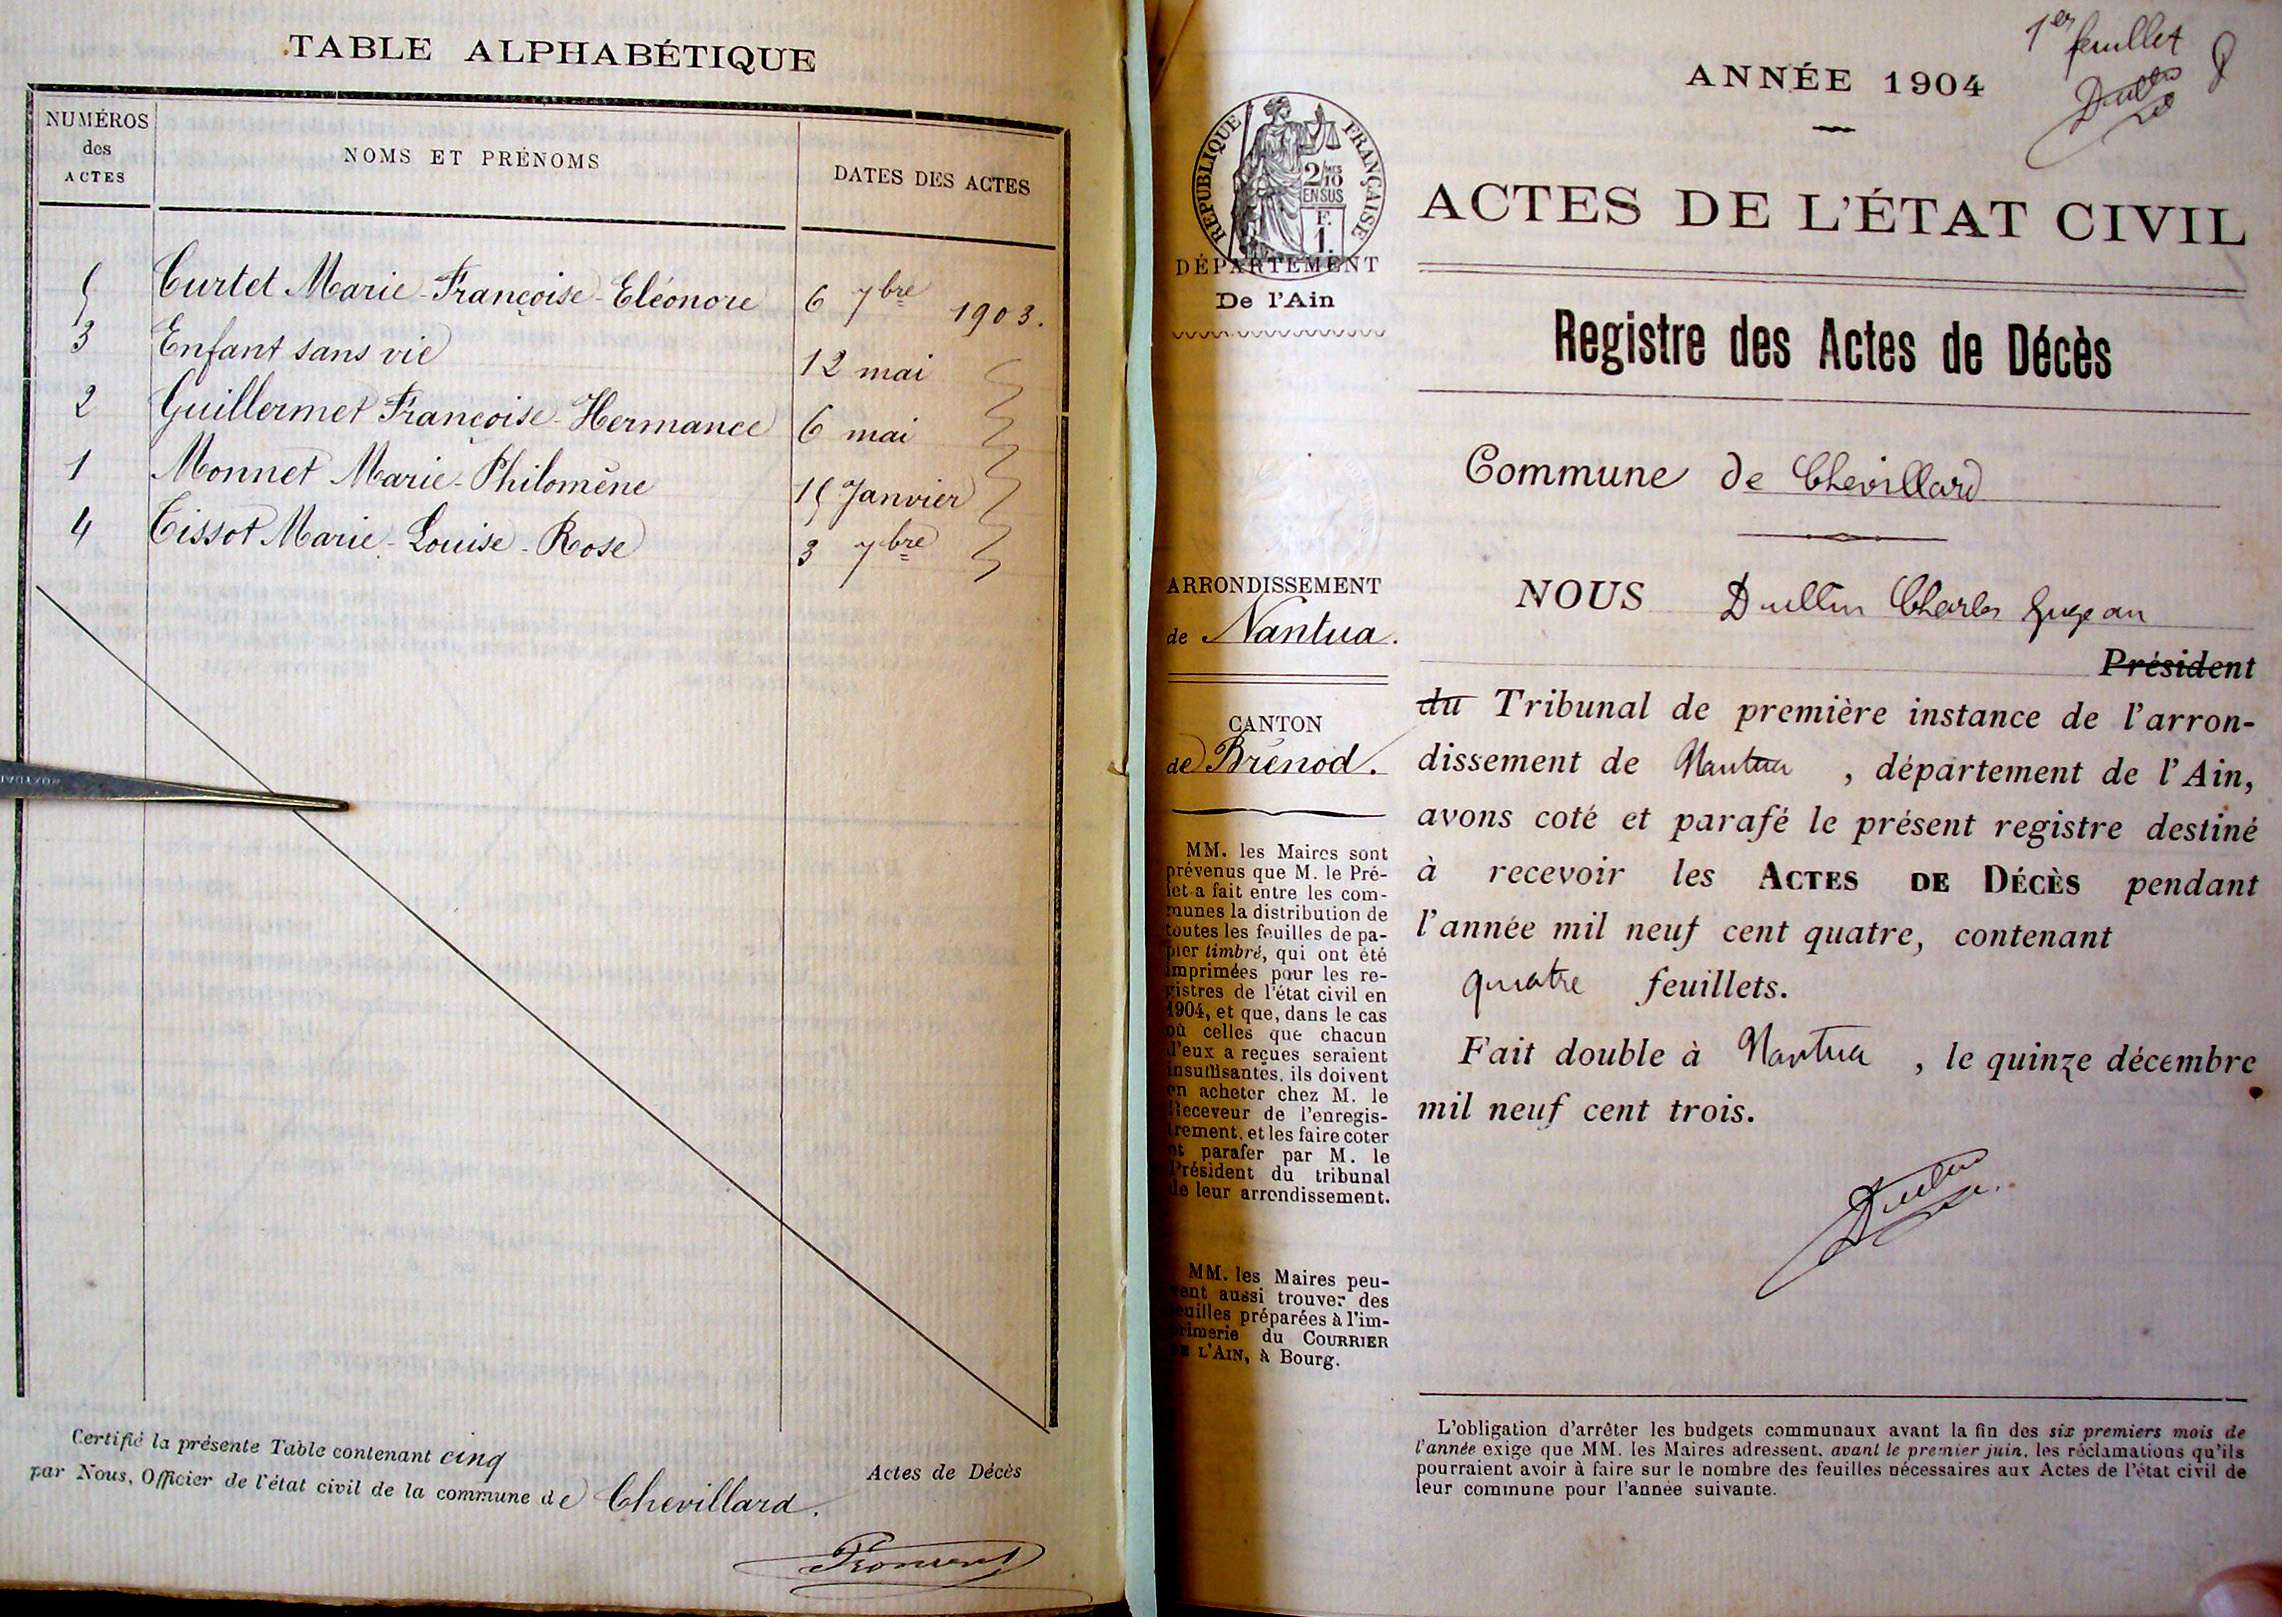 TABLE ALPHABÉTIQUE
NUMÉROS
des
ACTES
NOMS ET PRÉNOMS
DATES DES ACTES
5 Curtet Marie-Françoise-Eléonore 6 7bre 1903.
3 Enfant sans vie 12 mai
2 Guillermet Françoise-Hermance 6 mai
1 Monnet Marie-Philomène 15 Janvier
4 Tissot Marie-Louise-Rose 3 7bre
Certifié la présente Table contenant cinq
Actes de Décès
par Nous, Officier de l'état civil de la commune de Chevillard.
1er feuillet
ANNÉE 1904
RÉPUBLIQUE FRANÇAISE
2/10
EN SUS
F.
1.
ACTES DE L'ÉTAT CIVIL
DÉPARTEMENT
De l'Ain
Registre des Actes de Décès
Commune de Chevillard
ARRONDISSEMENT
de Nantua.
CANTON
de Brénod.
MM. les Maires sont
prévenus que M. le Pré-
fet a fait entre les com-
munes la distribution de
toutes les feuilles de pa-
pier timbré, qui ont été
imprimées pour les re-
gistres de l'état civil en
1904, et que, dans le cas
où celles que chacun
d'eux a reçues seraient
insuffisantes, ils doivent
en acheter chez M. le
Receveur de l'enregis-
trement, et les faire coter
et parafer par M. le
Président du tribunal
de leur arrondissement.
MM. les Maires peu-
vent aussi trouver des
feuilles préparées à l'im-
primerie du COURRIER
DE L'AIN, à Bourg.
NOUS Dullin Charles
Président
du Tribunal de première instance de l'arron-
dissement de Nantua, département de l'Ain,
avons coté et parafé le présent registre destiné
à recevoir les ACTES DE DÉCÈS pendant
l'année mil neuf cent quatre, contenant
quatre feuillets.
Fait double à Nantua, le quinze décembre
mil neuf cent trois.
L'obligation d'arrêter les budgets communaux avant la fin des six premiers mois de
l'année exige que MM. les Maires adressent, avant le premier juin, les réclamations qu'ils
pourraient avoir à faire sur le nombre des feuilles nécessaires aux Actes de l'état civil de
leur commune pour l'année suivante.